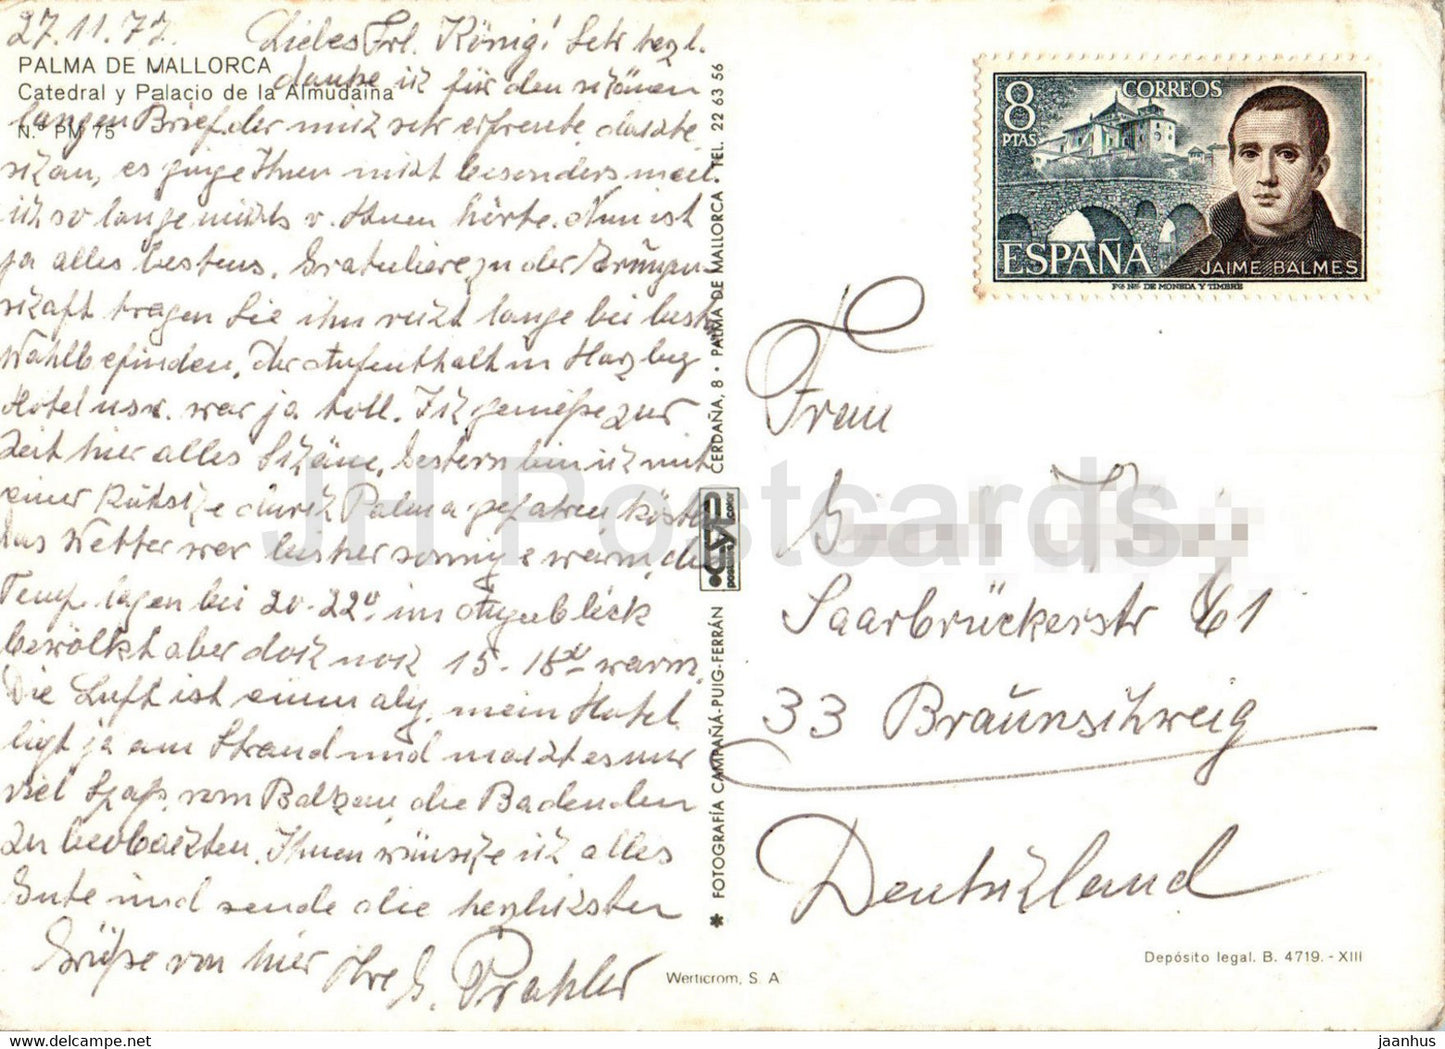 27.11.77. Liebes Frl. König! Sehr herzl.
PALMA DE MALLORCA
Catedral y Palacio de la Almudaina
N.º PM 75
danke ich für den schönen
langen Brief, der mich sehr erfreute, dachte
schon, es ginge Ihnen nicht besonders, weil
ich so lange nichts v. Ihnen hörte. Nun ist
ja alles bestens. Gratuliere zu der
tragen Sie ihn recht lange bei best.
Wohlbefinden. Der Aufenthalt in Harzburg
Hotel usw. war ja toll. Ich genieße zur
Zeit hier alles Schöne. Gestern bin ich mit
einer Kutsche durch Palma gefahren,
das Wetter war bisher sonnig & warm, die
Temp. lagen bei 20-22°, im Augenblick
bewölkt aber doch noch 15-18° warm.
Die Luft ist einmalig, mein Hotel
ligt ja am Strand und macht es mir
viel Spaß, vom Balkon, die Badenden
zu beobachten. Ihnen wünsche ich alles
Gute und sende die herzlichsten
Grüße von hier Ihre G. Prahler
CERDAÑA, 8 • PALMA DE MALLORCA • TEL. 22 63 56
* FOTOGRAFÍA CAMPAÑÁ-PUIG-FERRÁN
Werticrom, S. A
8 PTAS
CORREOS
ESPAÑA
JAIME BALMES
Fca Nal DE MONEDA Y TIMBRE
Frau
Saarbrückerstr 61
33 Braunschweig
Deutschland
Depósito legal. B. 4719. - XIII
JH Postcards
https://www.jhpostcards.com
jaanhus